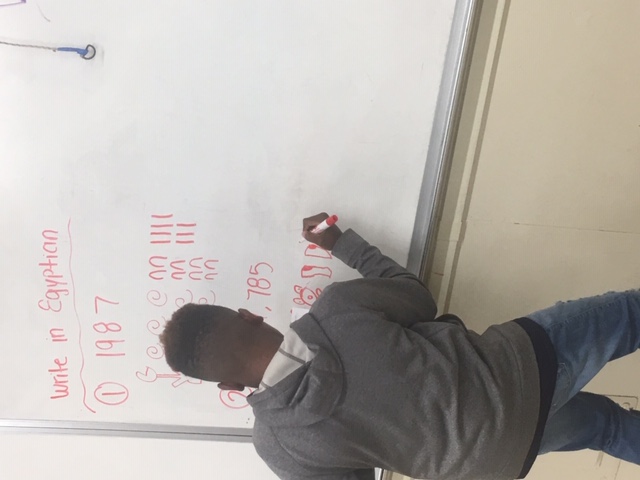 Write in Egyptian
① 1987
,785